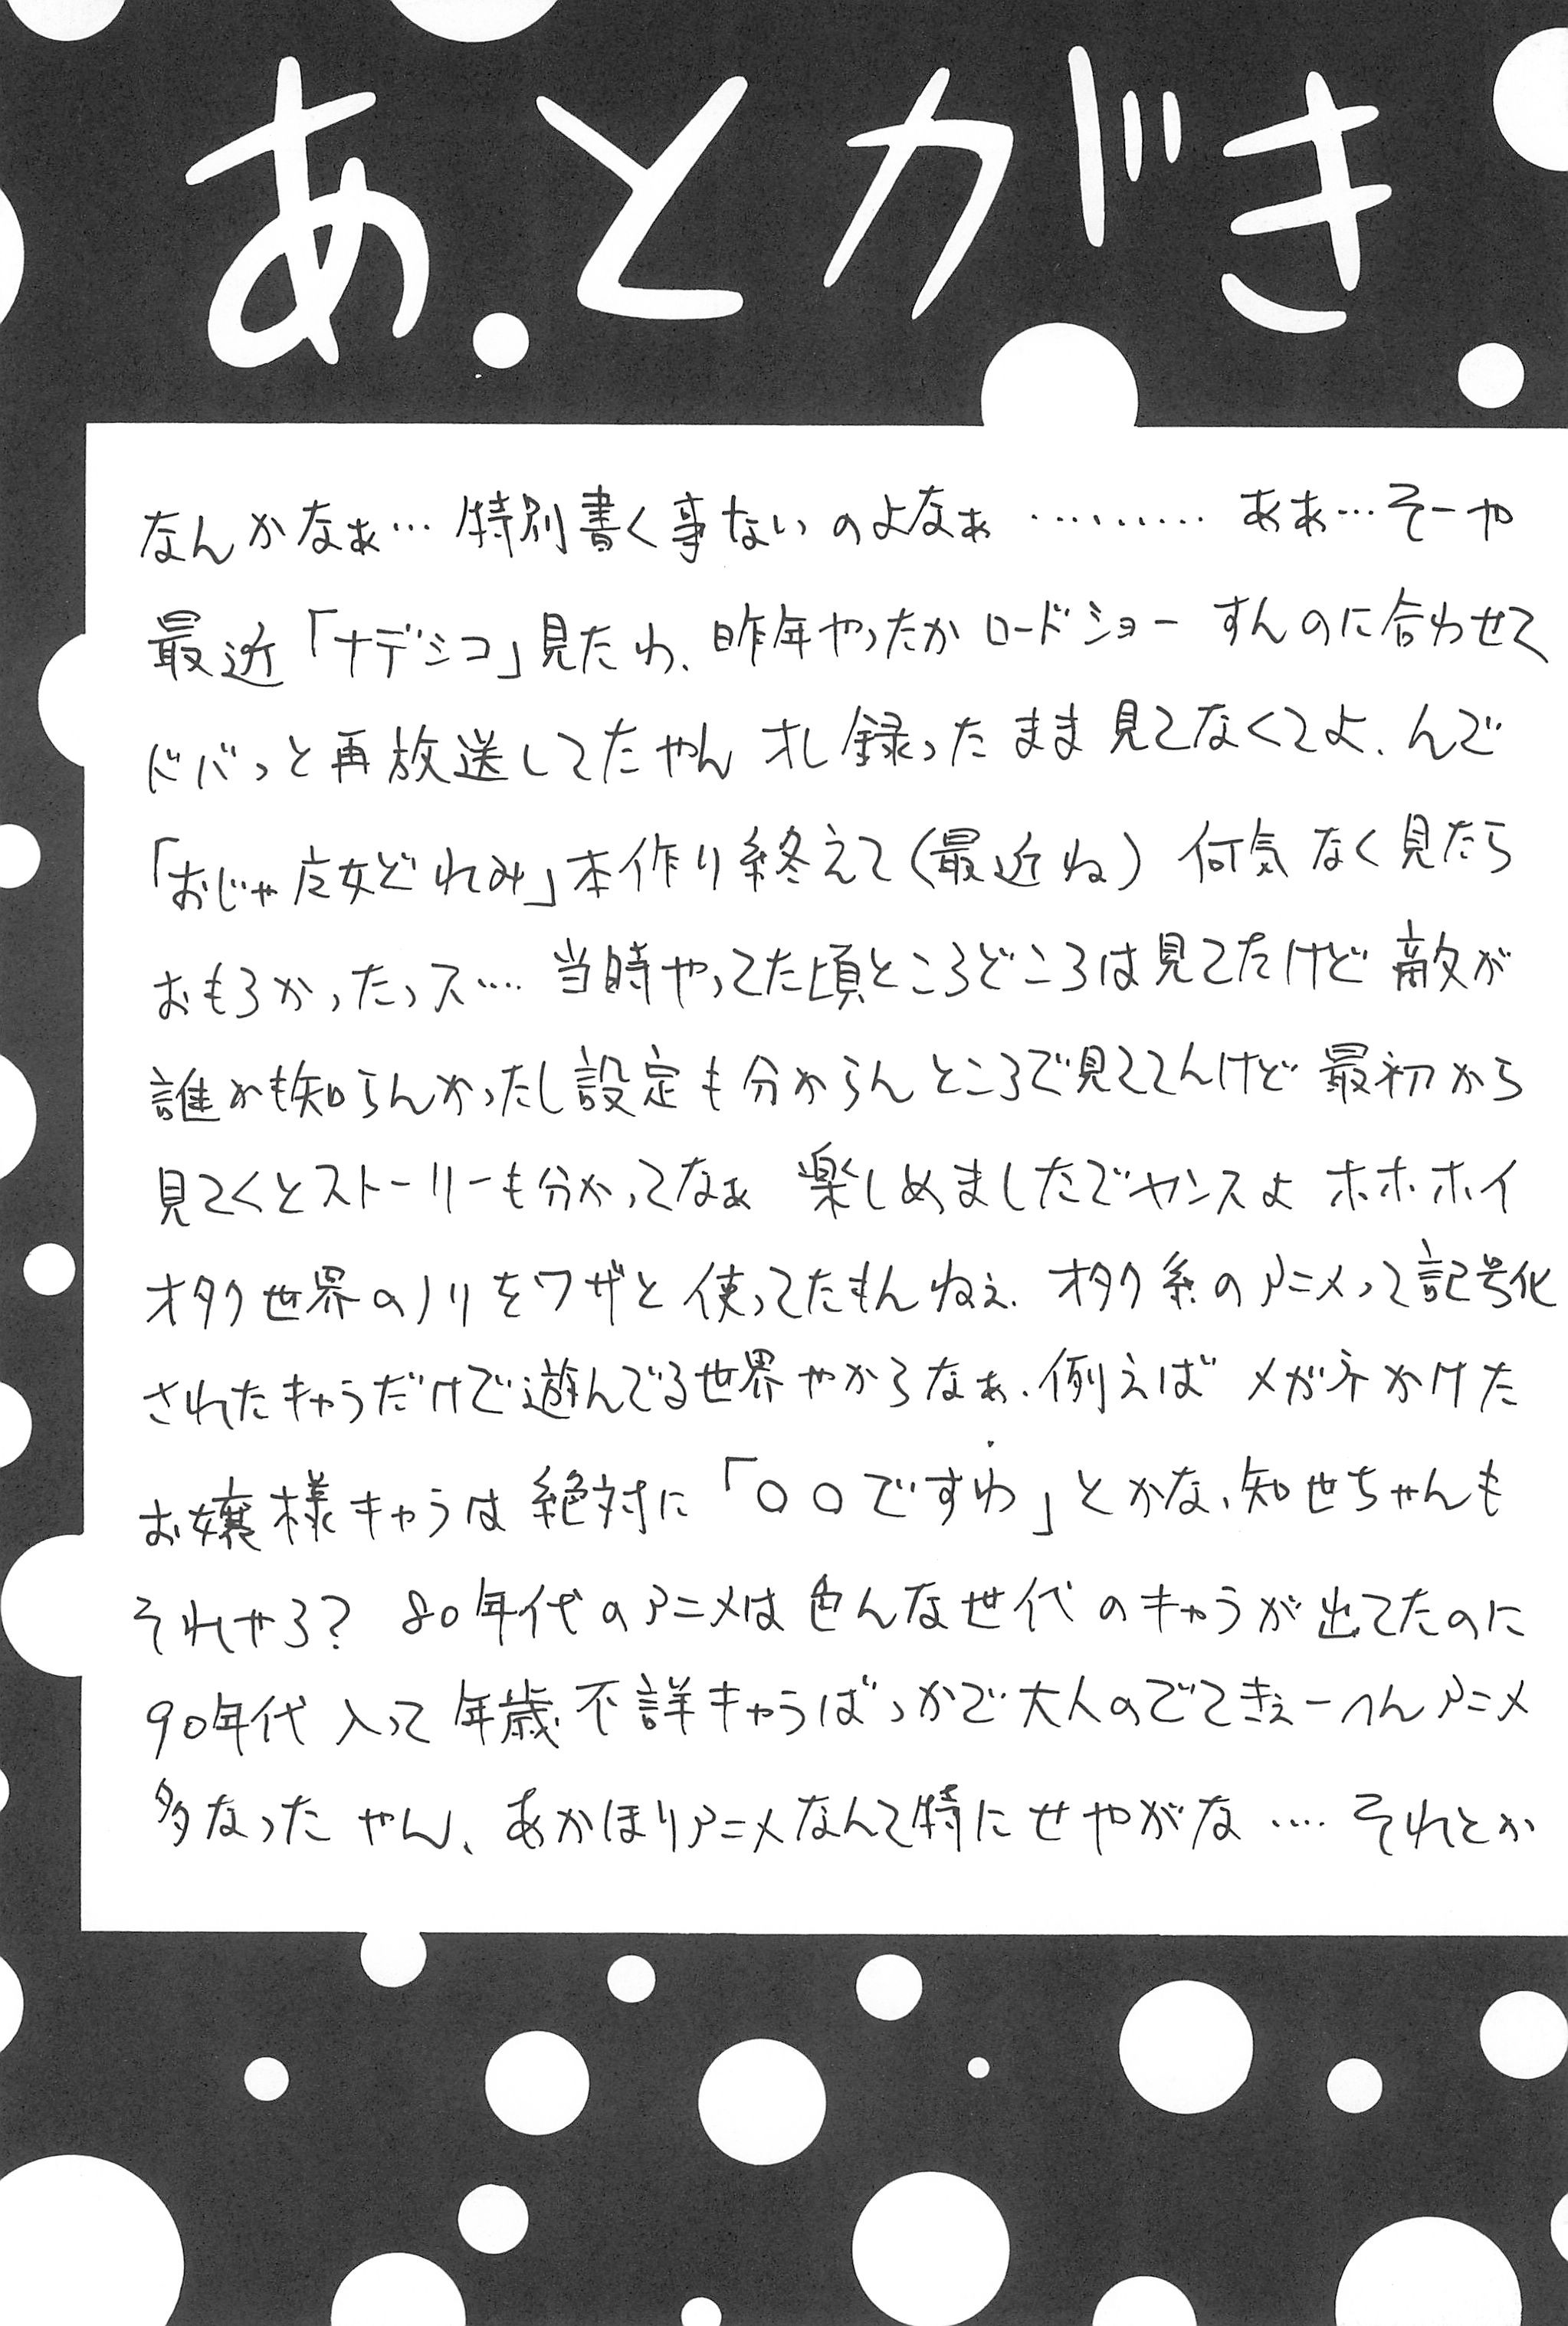 あとがき
なんかなぁ… 特別書く事ないのよなぁ ……… ああ…そーや
最近「ナデシコ」見たわ、昨年やったか ロードショー すんのに合わせて
ドバっと再放送してたやん オレ録ったまま見てなくてよ、んで
「おじゃ魔女どれみ」本作り終えて(最近ね) 何気なく見たら
おもろかったっス…. 当時やってた頃ところどころは見てたけど 敵が
誰かも知らんかったし設定も分からんところで見ててんけど 最初から
見てくとストーリーも分かってなぁ 楽しめましたでヤンスよ ホホホイ
オタク世界のノリをワザと使ってたもんねぇ、オタク系のアニメって記号化
されたキャラだけで遊んでる世界やからなぁ、例えば メガネかけた
お嬢様キャラは絶対に「○○ですわ」とかな、知世ちゃんも
それやろ? 80年代のアニメは色んな世代のキャラが出てたのに
90年代入って年歳不詳キャラばっかで大人のでてきぇーへんアニメ
多なったやん、あかほりアニメなんて特にせやがな …. それとか